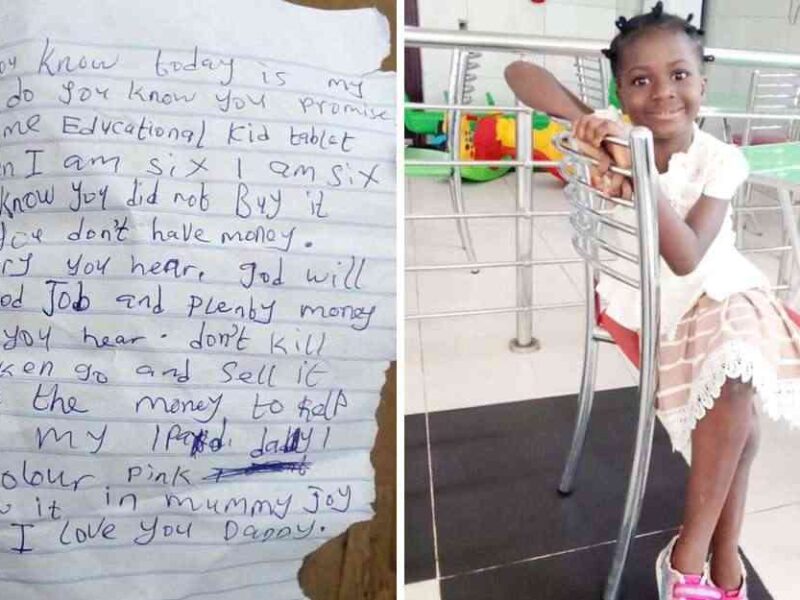 ou know today is my
do you know you promise
me Educational Kid tablet
n I am six I am six
know you did not Buy it
you don't have money.
ry you hear, god will
od Job and plenty money
you hear. don't kill
ken go and Sell it
the money to help
my IPad.
olour pink
it in mummy Joy
I love you Daddy.